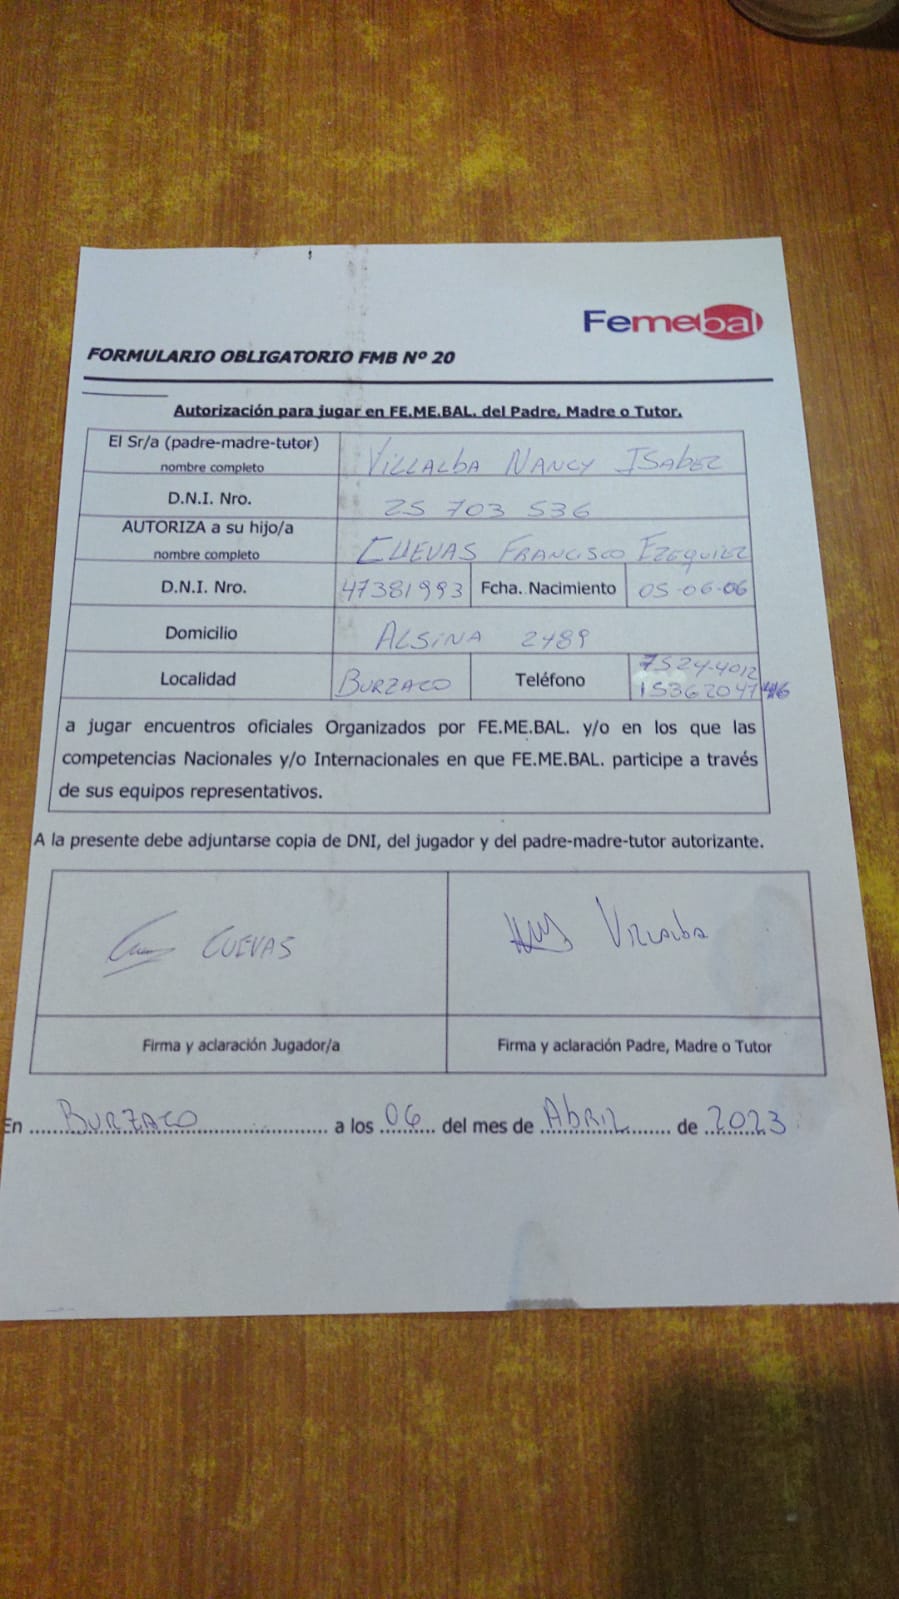 Femebal
FORMULARIO OBLIGATORIO FMB Nº 20
Autorización para jugar en FE.ME.BAL. del Padre, Madre o Tutor.
El Sr/a (padre-madre-tutor)
nombre completo
VILLALBA NANCY ISABEL
D.N.I. Nro.
25 703 536
AUTORIZA a su hijo/a
nombre completo
CUEVAS FRANCISCO EZEQUIEL
D.N.I. Nro.
47381993
Fcha. Nacimiento
05-06-06
Domicilio
ALSINA 2489
Localidad
BURZACO
Teléfono
7524-4012
a jugar encuentros oficiales Organizados por FE.ME.BAL. y/o en los que las
competencias Nacionales y/o Internacionales en que FE.ME.BAL. participe a través
de sus equipos representativos.
A la presente debe adjuntarse copia de DNI, del jugador y del padre-madre-tutor autorizante.
CUEVAS
VILLALBA
Firma y aclaración Jugador/a
Firma y aclaración Padre, Madre o Tutor
En BURZACO a los 06 del mes de ABRIL de 2023